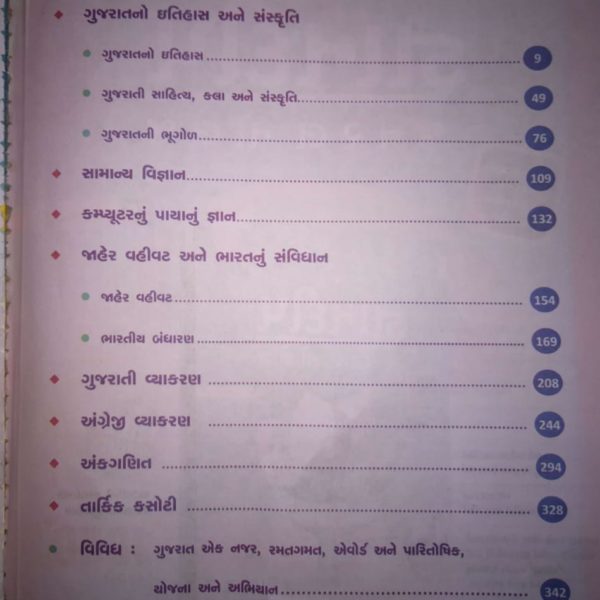 ગુજરાતનો ઇતિહાસ અને સંસ્કૃતિ
ગુજરાતનો ઇતિહાસ 9
ગુજરાતી સાહિત્ય, કલા અને સંસ્કૃતિ 49
ગુજરાતની ભૂગોળ 76
સામાન્ય વિજ્ઞાન 109
કમ્પ્યૂટરનું પાયાનું જ્ઞાન 132
જાહેર વહીવટ અને ભારતનું સંવિધાન
જાહેર વહીવટ 154
ભારતીય બંધારણ 169
ગુજરાતી વ્યાકરણ 208
અંગ્રેજી વ્યાકરણ 244
અંકગણિત 294
તાર્કિક કસોટી 328
વિવિધ : ગુજરાત એક નજર, રમતગમત, એવોર્ડ અને પારિતોષિક,
યોજના અને અભિયાન 342